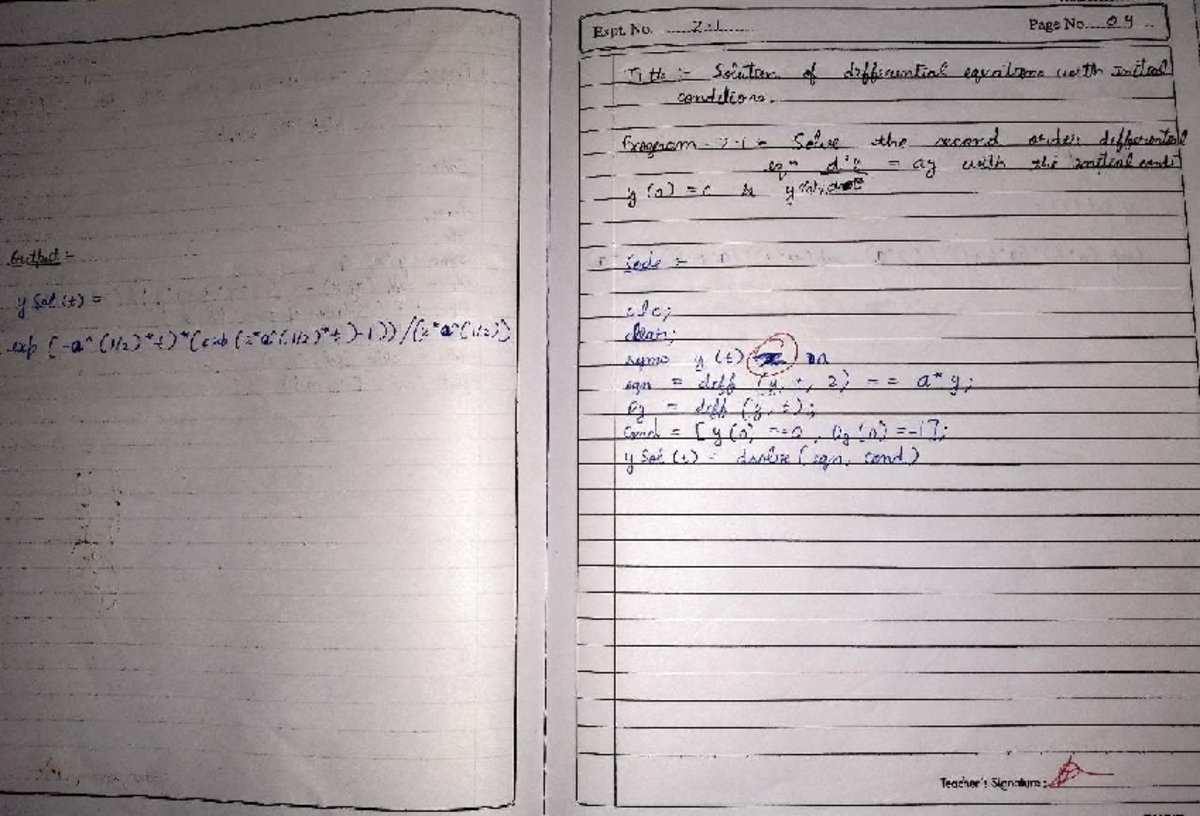 Output :-
y Sol (t) =
exp (-a^(1/2)*t)*(exp (2*a^(1/2)*t)-1))/(2*a^(1/2))
Expt. No. 2.1
Page No. 04
Title :- Solution of differential equations with initial
conditions.
Program :- Solve the second order differential
eqn = ay with the initial condit
y (0) = &
Code :-
clc;
clear;
syms y (t) a
eqn = diff (y, t, 2) == a* y;
Dy = diff (y, t);
Cond = [y(0) ==0 , Dy(0) ==1];
y Sol (t) = dsolve (eqn, cond)
Teacher's Signature :